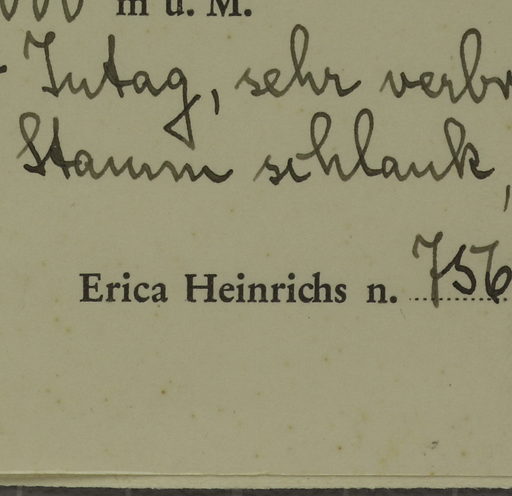 000 m ü. M.
Intag, sehr verbr
Stamm schlank,
Erica Heinrichs n. 756